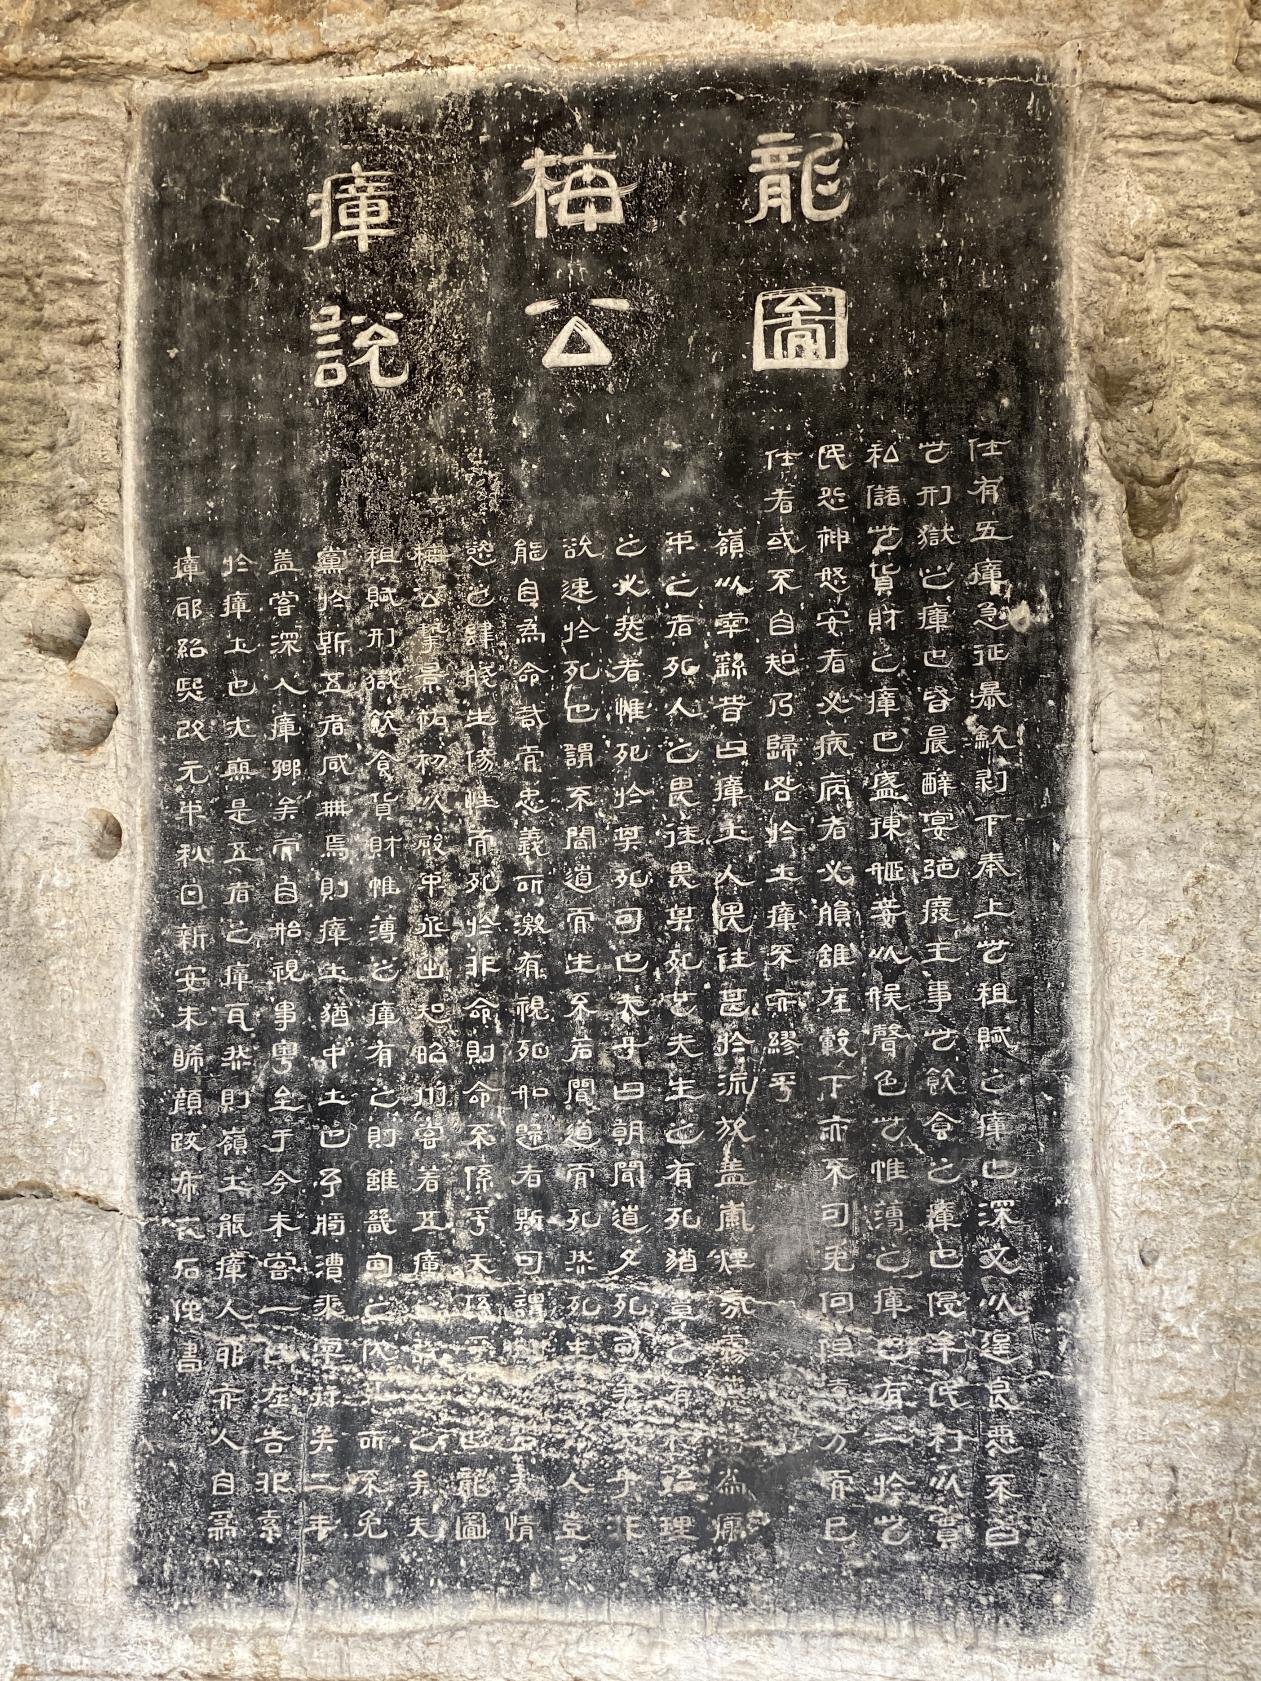 龍圖
梅公
瘴說
仕有五瘴急征暴斂剥下奉上此租賦之瘴也深文以逞良惡不白
此刑獄之瘴也昏晨醉宴弛廢王事此飲食之瘴也侵牟民利以實
私儲此貨財之瘴也盛揀姬妾以娛聲色此帷薄之瘴也有一於此
民怨神怒安者必病病者必殞雖在轂下亦不可免何但遠方而已
仕者或不自知乃歸咎於土瘴不亦繆乎
嶺以南繇昔曰瘴土人畏往甚於流放蓋嵐煙氛霧為癘
中之者死人之畏往畏其死也夫生之有死猶晝之有夜理
之必然者惟死於其死可也夫子曰朝聞道夕死可矣夫子非
說速於死也謂不聞道而生不若聞道而死然死生人豈
能自為命哉而忠義所激有視死如歸者斯可謂情
慾也肆殘生傷性而死於非命則命不係乎天係乎也龍圖
梅公摯景祐初以殿中丞出知昭州嘗著五瘴說之矣夫
租賦刑獄飲食貨財帷薄之瘴有之則雖畿甸之所不免
黨於斯五者咸無焉則瘴土猶中土也予將漕來南將矣二年
蓋嘗深入瘴鄉矣而自始視事粵至于今未嘗一日在告非素
於瘴土也大無是五者之瘴爾然則嶺土能瘴人耶亦人自為
瘴耶紹熙改元中秋日新安朱晞顏跋石俾書